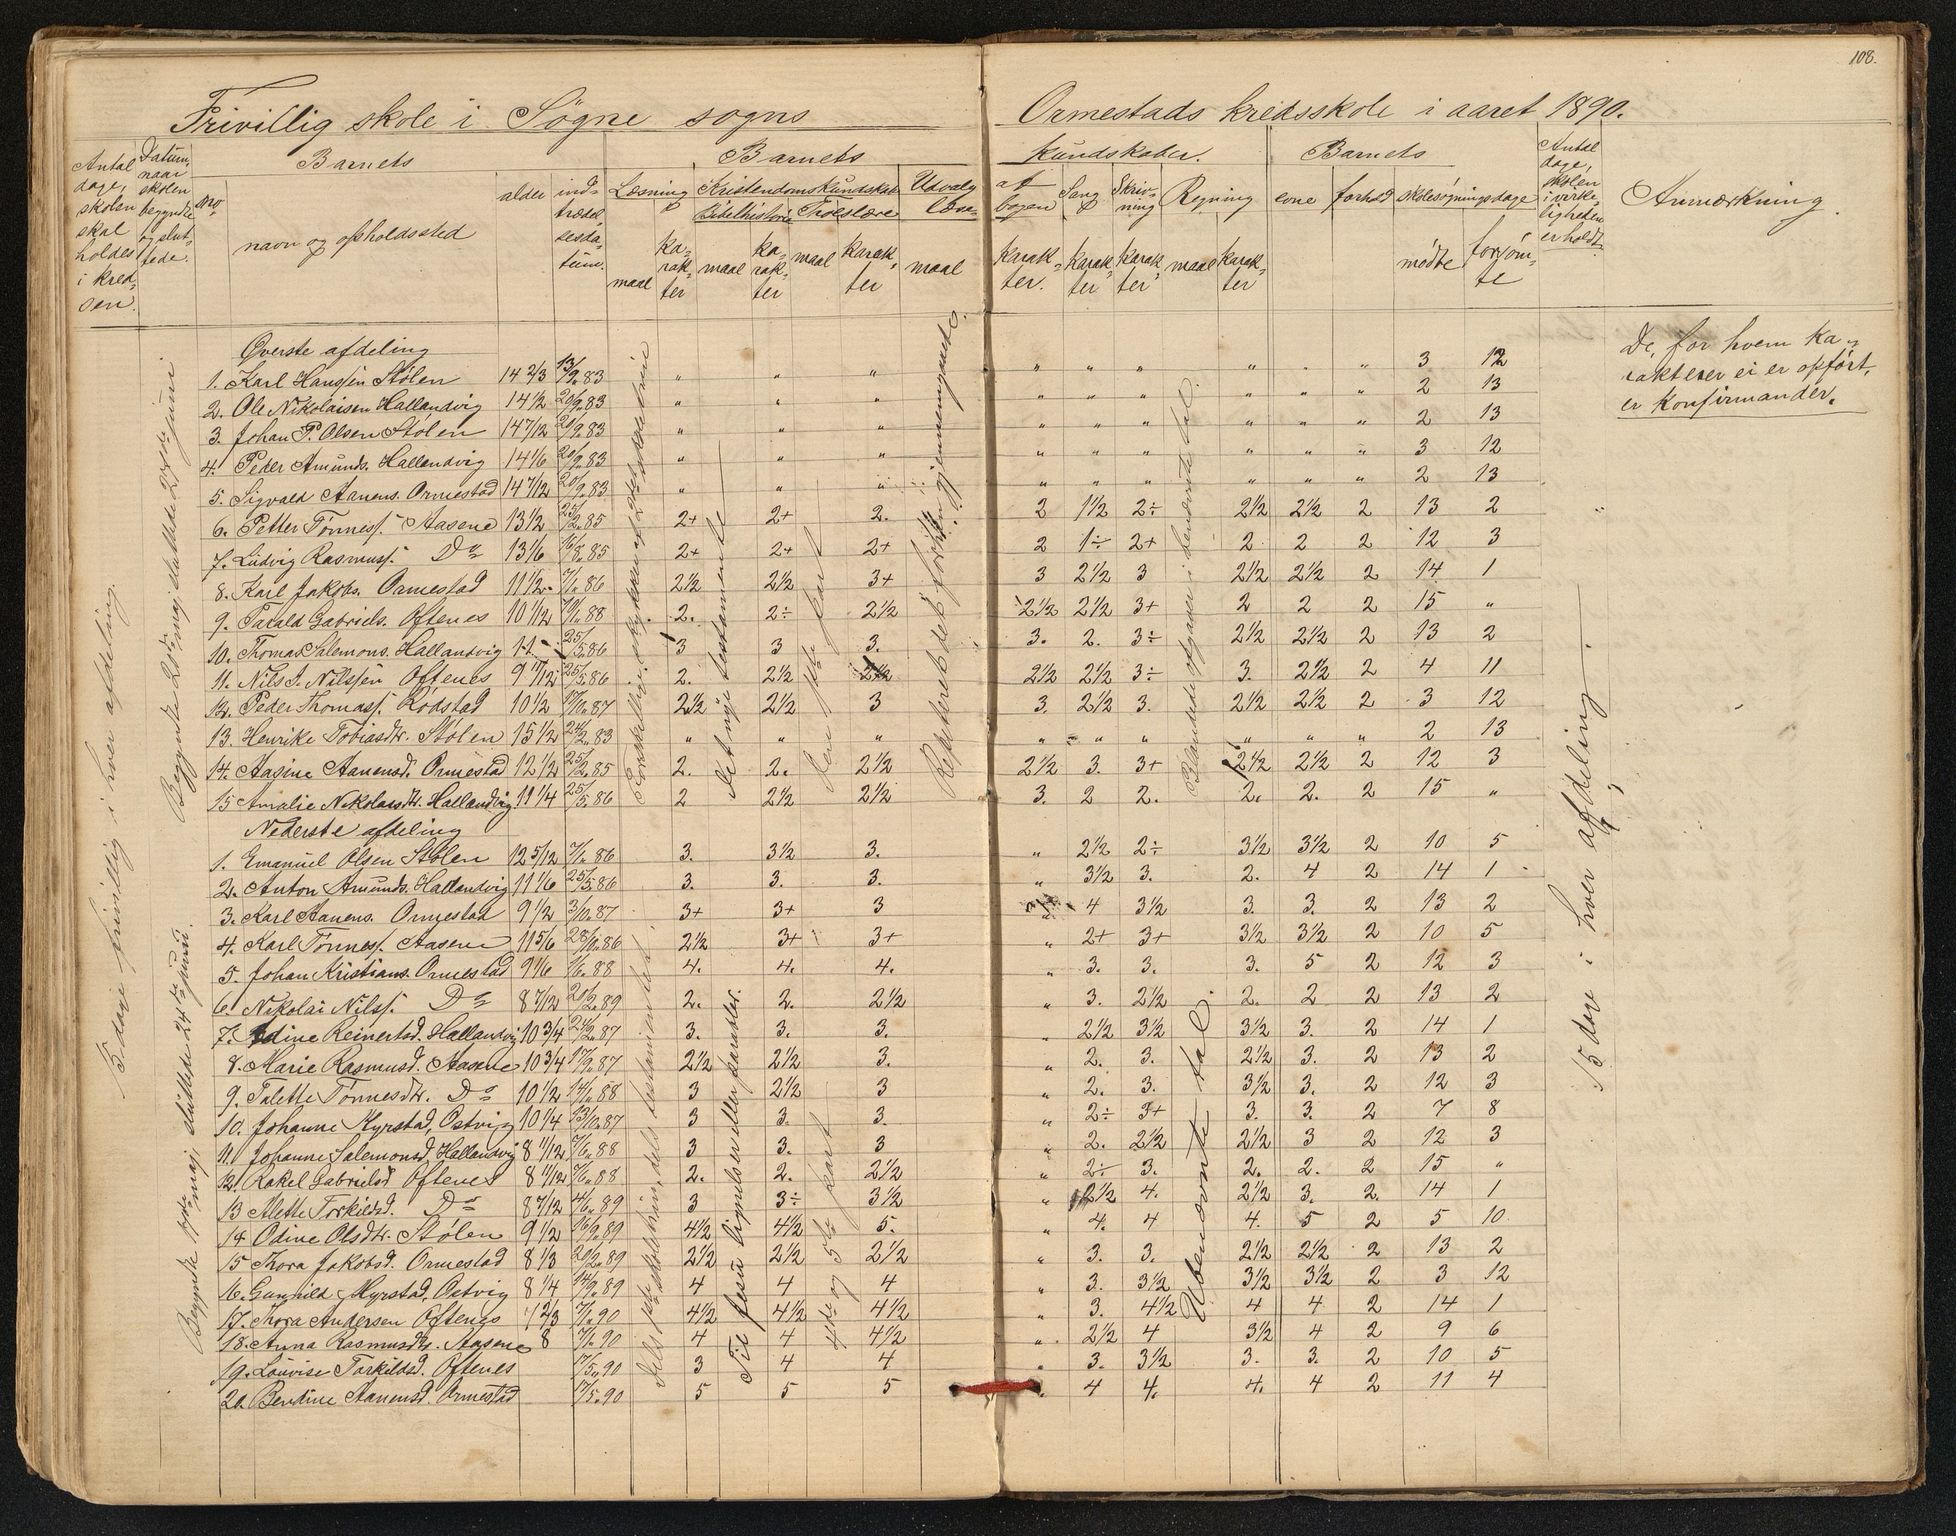 108.
Frivillig skole i Søgne sogns Ormestads kredsskole i aaret 1890.
Antal dage, skolen skal holdes i kredsen.
Datum, naar skolen begyndte og sluttede.
No.
Barnets
navn og opholdssted
alder
indtrædelsesdatum.
Barnets kundskaber.
Læsning
maal
karakter
Kristendomskundskab
Bibelhistorie
maal
karakter
Troeslære
maal
karakter
Udvalg læse-
maal
af bogen
karakter.
Sang
karakter
Skrivning
karakter
Regning
maal
karakter
Barnets
evne
forhold
skolesøgningsdage
mødte
forsømte
Antal dage, skolen i virkeligheden er holdt.
Anmærkning.
15 dage frivillig i hver afdeling.
15 dage i hver afdeling.
De, for hvem karakterer ei er opført, er konfirmander.
Øverste afdeling
1. Karl Hanssen Stølen 14 2/3 13/9.83 " " " " " " " " " 3 12
2. Ole Nikolaisen Hallandvig 14 1/2 20/9.83 " " " " " " " " " 2 13
3. Johan P. Olsen Stølen 14 7/12 20/9.83 " " " " " " " " " 2 13
4. Peder Amunds. Hallandvig 14 1/6 20/9.83 " " " " " " " " " 3 12
5. Sigvald Aanens. Ormestad 14 7/12 20/9.83 " " " " " " " " " 2 13
6. Petter Tønness. Aasene 13 1/2 25/2.85 2+ 2+ 2. 2 1 1/2 2÷ 2 1/2 2 1/2 2 13 2
7. Ludvig Rasmuss. Do 13 1/6 16/8.85 2+ 2+ 2+ 2 1÷ 2+ 2 2 2 12 3
8. Karl Jakobs. Ormestad 11 1/2 7/1.86 2 1/2 2 1/2 3+ 3 2 1/2 3 2 1/2 2 1/2 2 14 1
9. Tarald Gabriels. Oftenes 10 1/12 19/1.88 2. 2÷ 2 1/2 2 1/2 2 1/2 3+ 2 2 2 15 "
10. Thomas Salemons. Hallandvig 11 25/5.86 3 3 3. 3. 2. 3÷ 2 1/2 2 1/2 2 13 2
11. Nils J. Nilssen Oftenes 9 11/12 25/5.86 2. 2 1/2 2 1/2 2 1/2 2 1/2 3÷ 3. 2 1/2 2 4 11
12. Peder Thomass. Rødstad 10 1/2 17/10.87 2 1/2 2 1/2 3 3. 2 1/2 3. 2 1/2 2 1/2 2 3 12
13. Henrike Tobiasdtr. Stølen 15 1/2 24/2.83 " " " " " " " " " 2 13
14. Aasine Aanensd. Ormestad 12 1/2 25/2.85 2. 2. 2 1/2 2 1/2 3. 3+ 2 1/2 2 1/2 2 12 3
15 Amalie Nikolaisdtr. Hallandvig 11 1/4 25/5.86 2 2 1/2 2 1/2 3. 2 2. 2. 2. 2 15 "
Nederste afdeling
1. Emanuel Olsen Stølen 12 5/12 7/1.86 3. 3 1/2 3. " 2 1/2 2÷ 3 1/2 3 1/2 2 10 5
2. Anton Amunds. Hallandvig 11 1/6 25/5.86 3. 3. 3. " 3 1/2 3. 2. 4 2 14 1
3. Karl Aanens. Ormestad 9 1/2 3/10.87 3+ 3+ 3 " 4 3 1/2 3. 3. 2 13 2
4. Karl Tønness. Aasene 11 5/6 28/10.86 2 1/2 3+ 3+ " 2+ 3+ 3 1/2 3 1/2 2 10 5
5. Johan Kristians. Ormestad 9 1/6 7/6.88 4. 4. 4. " 3. 3. 3. 5 2 12 3
6. Nikolai Nilss. Do 8 7/12 20/2.89 2. 2. 2 1/2 " 3. 2 1/2 2. 2 2 13 2
7. Edine Reinertsd. Hallandvig 10 3/4 24/2.87 3. 3. 3. " 2 1/2 3 1/2 3 1/2 3. 2 14 1
8. Marie Rasmusd. Aasene 10 3/4 17/9.87 2 1/2 2 1/2 3. " 2. 3. 2 1/2 3. 2 13 2
9. Talette Tønnesdtr. Do 10 1/2 14/1.88 3 2 1/2 3 " 2. 3. 3 1/2 3. 2 12 3
10. Johanne Myrstad, Østvig 10 1/4 13/10.87 3 3. 3. " 2÷ 3+ 3. 3. 2 7 8
11. Johanne Salemonsd. Hallandvig 8 11/12 7/6.88 3 3. 3 " 2. 2 1/2 2 1/2 3 2 12 3
12. Rakel Gabrielsd Oftenes 8 11/12 7/6.88 2. 2. 2 1/2 " 2÷ 3. 2. 2. 2 15 "
13 Alette Torkildsd. Do 8 7/12 4/6.89 3 3÷ 3 1/2 " 2 1/2 4. 2 1/2 3. 2 14 1
14 Odine Olsdtr. Stølen 9 1/2 16/9.89 4 1/2 4 1/2 5. " 4. 4 4. 5 2 5 10
15 Thora Jakobsd. Ormestad 8 1/3 20/2.89 2 1/2 2 1/2 2 1/2 " 3. 3. 2 1/2 2 1/2 2 13 2
16. Gunhild Myrstad, Østvig 8 1/4 14/9.89 4 4 4 " 3. 3 1/2 3 1/2 3 1/2 2 3 12
17. Thora Andersen Oftenes 7 2/3 7/1.90 4 1/2 4 1/2 4 1/2 " 3. 4 1/2 4 4 2 14 1
18. Anna Rasmusdtr. Aasene 8 7/1.90 4 4 4 1/2 " 2 1/2 4 3 1/2 4 2 9 6
19. Lovise Torkildsd. Oftenes 17/5.90 3 4 4 " 3. 3 1/2 3. 3. 2 10 5
20. Bendine Aanensd. Ormestad 17/5.90 5 5 5 " 4 4. 4. 4 2 11 4
Begyndte 20de maj, sluttede 23de juni.
Begyndte 19de maj, sluttede 24de juni.
Forskellige stykker af 2det
Det nye testamente
den 1ste part
Repeteret det forhen gjennemgaaede.
Blandede opgaver i benævnte tal.
Dels 1ste skoletrin, dels testamentet.
Til
4de og 5te part
Ubenævnte tal.